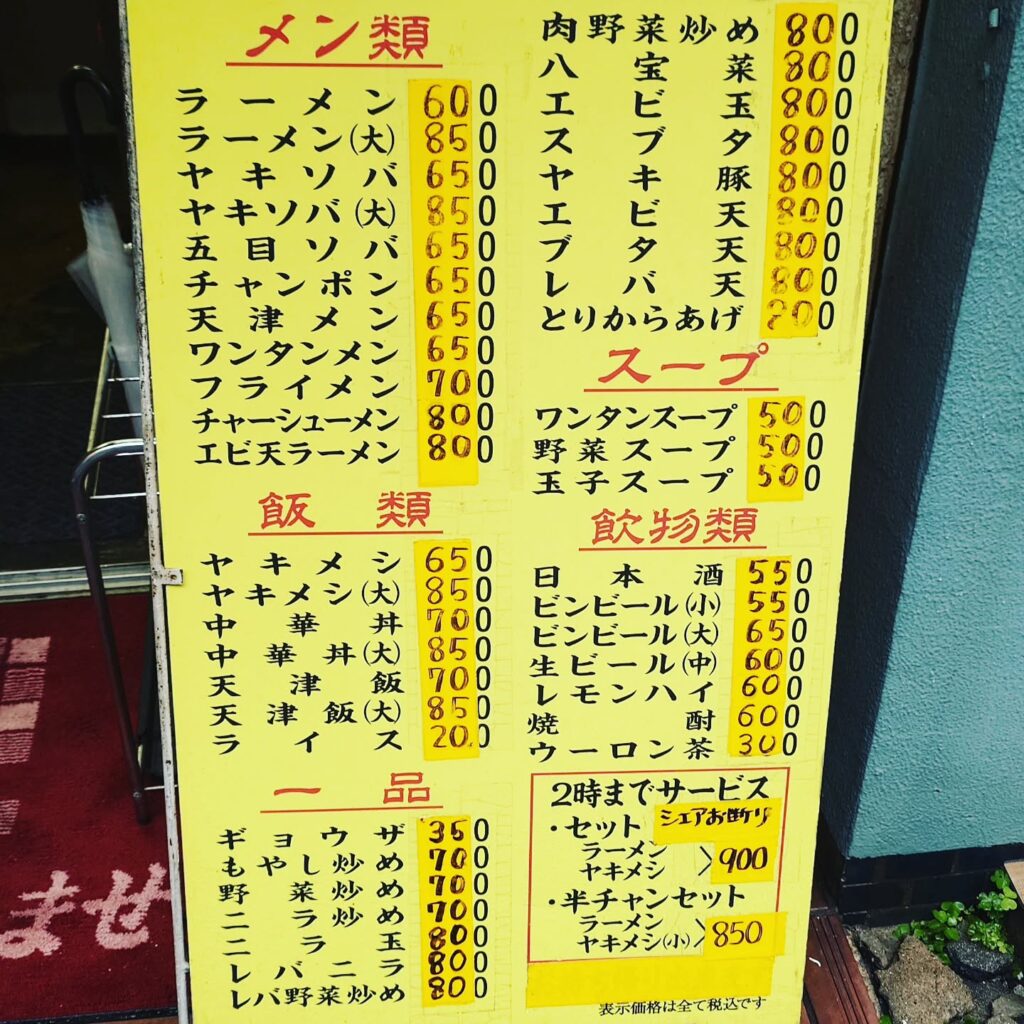 メン類
ラーメン 600
ラーメン(大) 850
ヤキソバ 650
ヤキソバ(大) 850
五目ソバ 650
チャンポン 650
天津メン 650
ワンタンメン 650
フライメン 700
チャーシューメン 800
エビ天ラーメン 800
飯類
ヤキメシ 650
ヤキメシ(大) 850
中華丼 700
中華丼(大) 850
天津飯 700
天津飯(大) 850
ライス 200
一品
ギョウザ 350
もやし炒め 700
野菜炒め 700
ニラ炒め 700
ニラ玉 800
レバニラ 800
レバ野菜炒め 800
肉野菜炒め 800
八宝菜 800
エビ玉 800
スブタ 800
ヤキ豚 800
エビ天 800
ブタ天 800
レバ天 800
とりからあげ 800
スープ
ワンタンスープ 500
野菜スープ 500
玉子スープ 500
飲物類
日本酒 550
ビンビール(小) 550
ビンビール(大) 650
生ビール(中) 600
レモンハイ 600
焼酎 600
ウーロン茶 300
2時までサービス
・セット シェアお断り
ラーメン
ヤキメシ > 900
・半チャンセット
ラーメン
ヤキメシ(小) > 850
表示価格は全て税込です
ませ